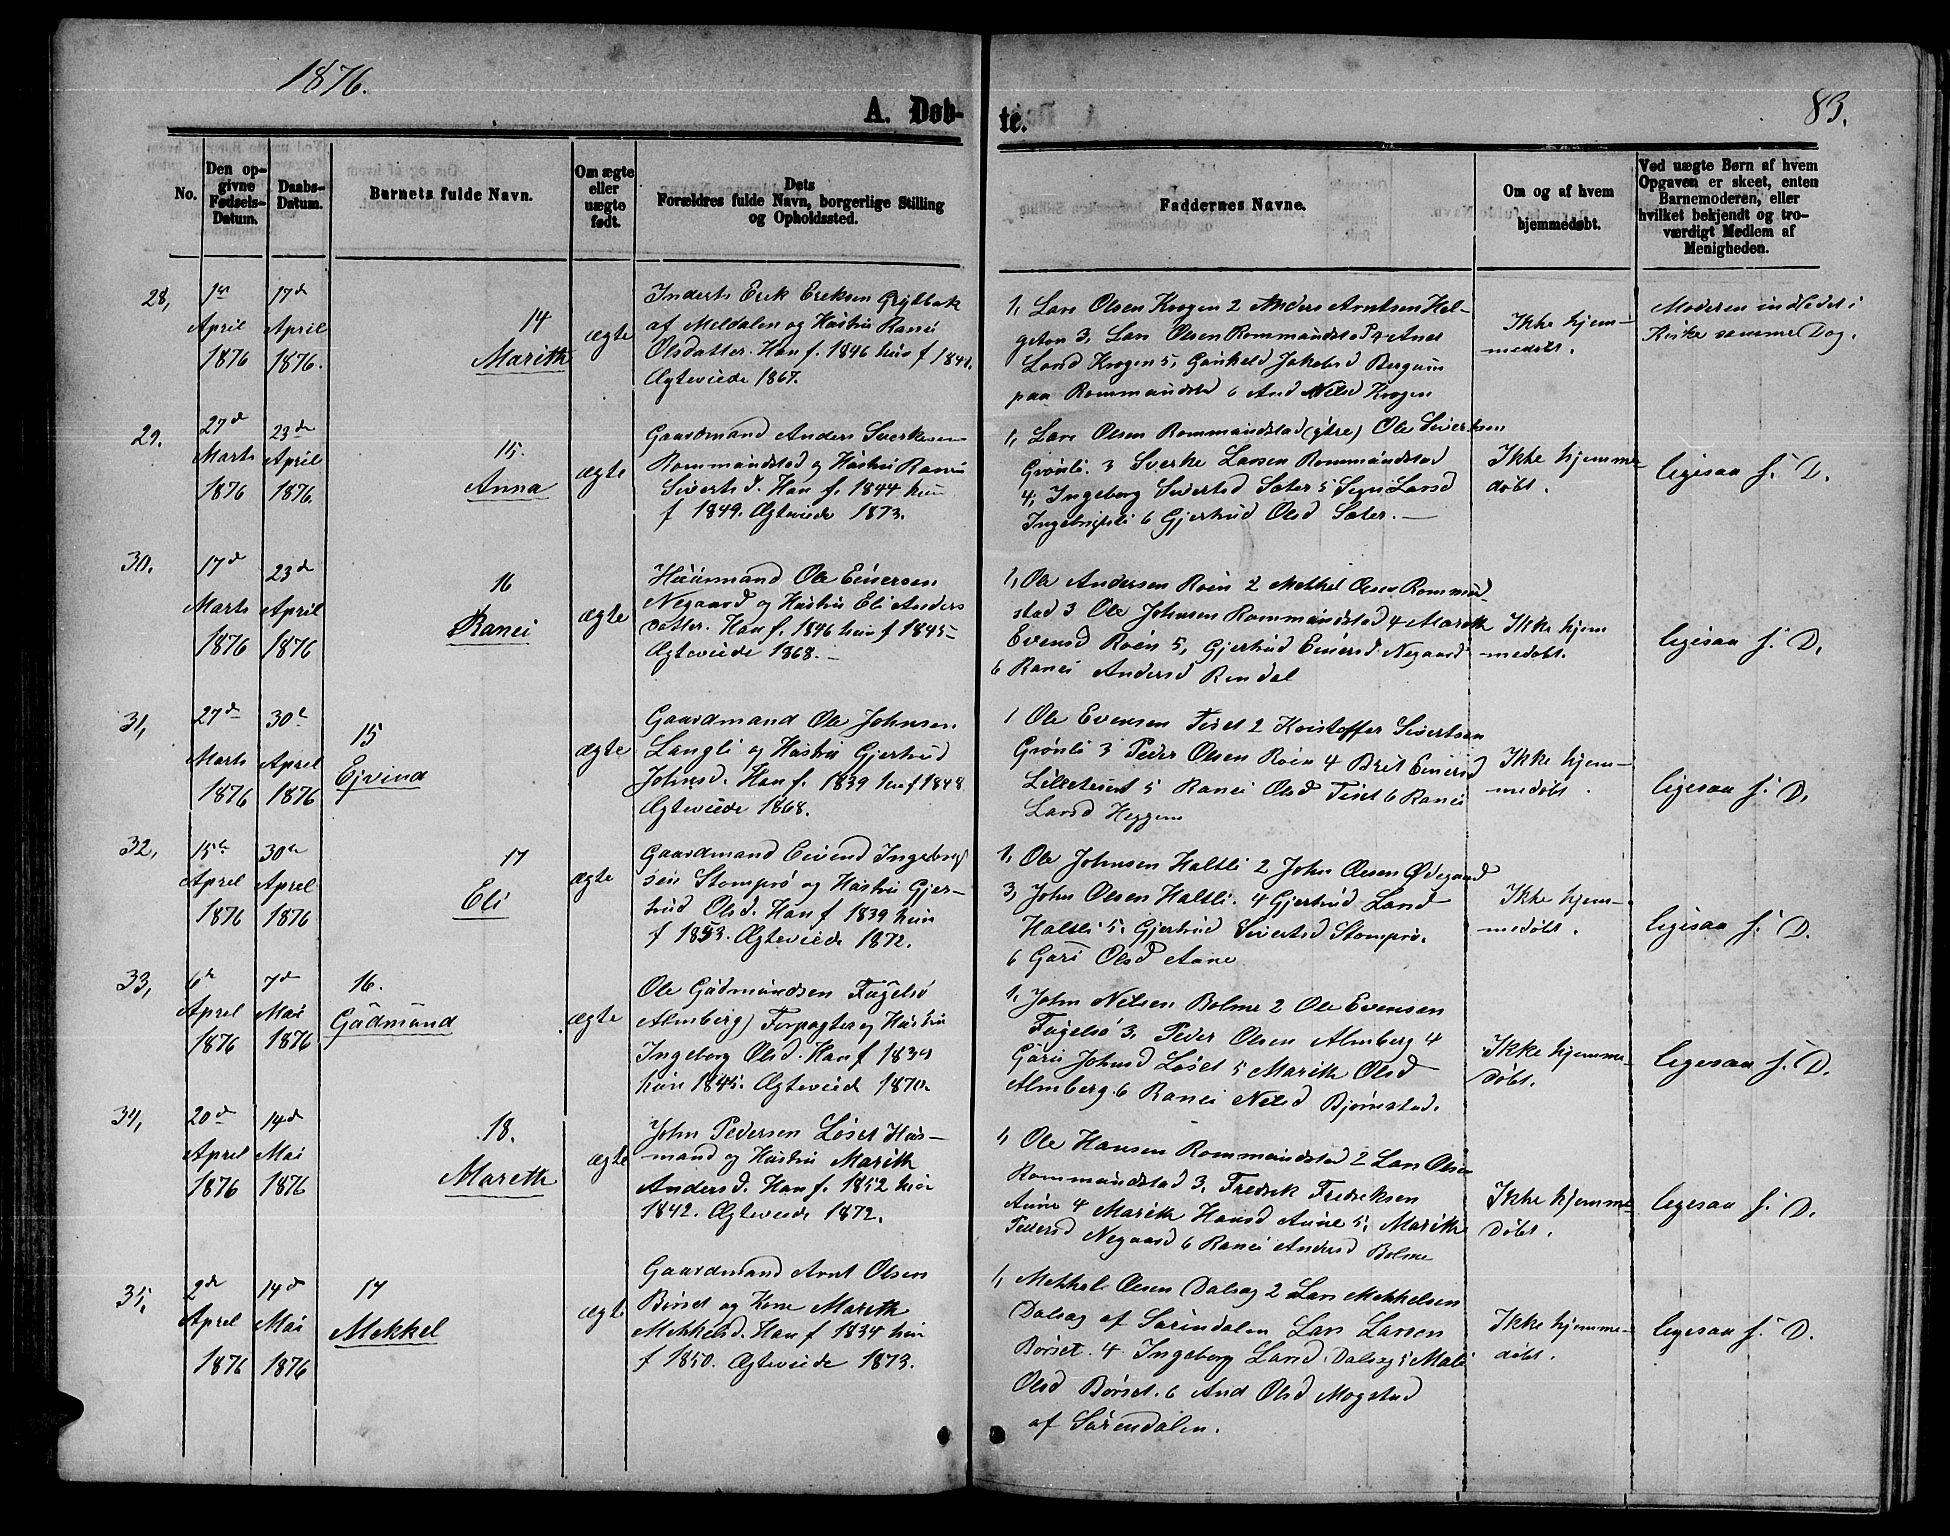 1876.
A. Døb-
te.
83.
No.
Den op-
givne
Fødsels-
Datum.
Daabs-
Datum.
Barnets fulde Navn.
Om ægte
eller
uægte
født.
Dets
Forældres fulde Navn, borgerlige Stilling
og Opholdssted.
Faddernes Navne.
Om og af hvem
hjemmedøbt.
Ved uægte Børn af hvem
Opgaven er skeet, enten
Barnemoderen, eller
hvilket bekjendt og tro-
værdigt Medlem af
Menigheden.
28,
April
1876
17de
April
1876.
14
Marith
ægte
Inderts Erik Eriksen Grytbak
af Meldalen og Hustru Ranei
Olsdatter. Han f. 1846 hun f 1841.
Ægteviede 1867.
1, Lars Olsen Krogen 2 Anders Arntsen Hel-
geton 3, Lars Olsen Rommundstad 4 Ane
Larsd Krogen 5, Gunhild Jakobsd Bergum
paa Rommundstad 6 And Nilsd Krogen
Ikke hjem-
medøbt.
Moderen indledet i
Kirke samme Dag.
29.
27de
Marts
1876
23de
April
1876.
15.
Anna
ægte
Gaardmand Anders Sverkesen
Rommundstad og Hustru Ranei
Sivertsd. Han f. 1844 hun
f 1849. Ægteviede 1873.
1, Lars Olsen Rommundstad (ytre) Ole Sivertsen
Grønli 3 Sverke Larsen Rommundstad
4, Ingeborg Sivertsd Sæter 5 Sign Larsd
Ingebrigtsli 6 Gjertrud Olsd Sæter. —
Ikke hjemme-
døbt.
ligesaa s. D.
30.
17de
Marts
1876
23de
April
1876
16
Ranei
ægte
Huusmand Ole Einersen
Negaard og Hustru Eli Anders
datter. Han f. 1846 hun f 1845-
Ægteviede 1868. —
1, Ole Andersen Roen 2 Mekkel Olsen Rommund-
stad 3 Ole Johnsen Rommundstad 4 Marith
Evensd Roen 5, Gjertrud Einersd Negaard
6 Ranei Andersd Rindal
Ikke hjem
medøbt.
ligesaa s. D.
31,
27de
Marts
1876
30te
April
1876
15
Ejvind
ægte
Gaardmand Ole Johnsen
Langli og Hustru Gjertrud
Johnsd. Han f. 1839 hun f 1848
Ægteviede 1868.
1 Ole Evensen Tiset 2 Kristoffer Sivertsen
Grønli 3 Peder Olsen Roen 4 Brit Einersd
Lilletunet 5 Ranei Olsd Tiset 6 Ranei
Larsd Heggem
Ikke hjem-
medøbt.
ligesaa s. D.
32,
15de
April
1876
30te
April
1876
17
Eli
ægte
Gaardmand Eivend Ingebrigt
sen Stomprø og Hustru Gjer-
trud Olsd. Han f. 1839 hun
f 1853. Ægteviede 1872.
1, Ole Johnsen Haltli 2 John Olsen Ødegaard
3, John Olsen Haltli. 4 Gjertrud Larsd
Haltli 5. Gjertrud Sivertsd Stomprø.
6 Guri Olsd Aune
Ikke hjem-
medøbt.
ligesaa s. D.
33,
6te
April
1876
7de
Mai
1876
16.
Gudmund
ægte
Ole Gudmundsen Fugelsø
Almberg) Forpagter og Hustru
Ingeborg Olsd. Han f 1834
hun 1845. Ægteviede 1870.
1, John Nelsen Bolme 2 Ole Evensen
Fugelsø 3, Peder Olsen Almberg 4
Guru Johnsd Løset 5 Marith Olsd
Almberg. 6 Ranei Nelsd Bjørnstad.
Ikke hjemme-
døbt.
ligesaa s. D.
34,
20de
April
1876
14de
Mai
1876
18.
Mareth
ægte
John Pedersen Løset Hus-
mand og Hustru Marith
Andersd. Han f. 1852 hun
1842. Ægteviede 1872.
1, Ole Hansen Rommundstad 2 Lars Olsen
Rommundstad 3, Fredrik Fredriksen
Aune 4 Marith Hansd Aune 5, Marith
Pedersd Negaard 6 Ranei Andersd Bolme
Ikke hjemme-
døbt.
ligesaa s. D.
35,
2de
April
1876
14de
Mai
1876
17
Mekkel
ægte
Gaardmand Arnt Olsen
Børset og Kone Mareth
Mekkelsd. Han f 1834 hun
f 1850. Ægteviede 1873.
1, Mekkel Olsen Dalsæg 2 Lars Mekkelsen
Dalsæg af Surendalen Lars Larsen
Børset. 4 Ingeborg Larsd. Dalsæg 5 Mali
Olsd Børset. 6 And Olsd Mogstad
af Surendalen.
Ikke hjemme-
døbt.
ligesaa s. D.